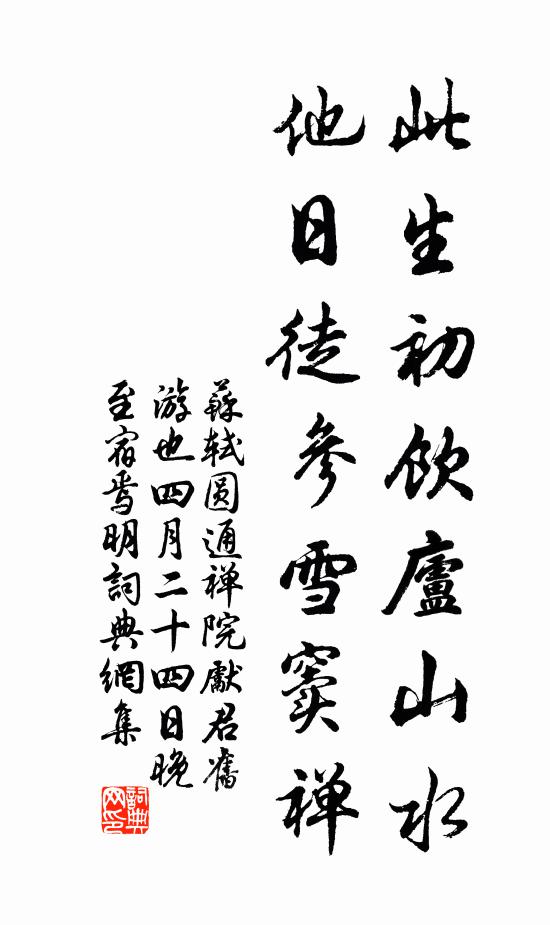 此生初飲廬山水
他日徒參雪竇禅
蘇軾圆通禅院獻君舊
游也四月二十四日晚
至宿焉明詞典網集
詞典網印